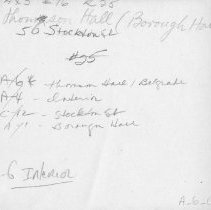 #16
Thompson Hall (Borough Ha
56 Stockton St
#25
Thomson Hall / Belgrade
A-4 - Interior
- Stockton St
- Borough Hall
-6 Interior
A-6-